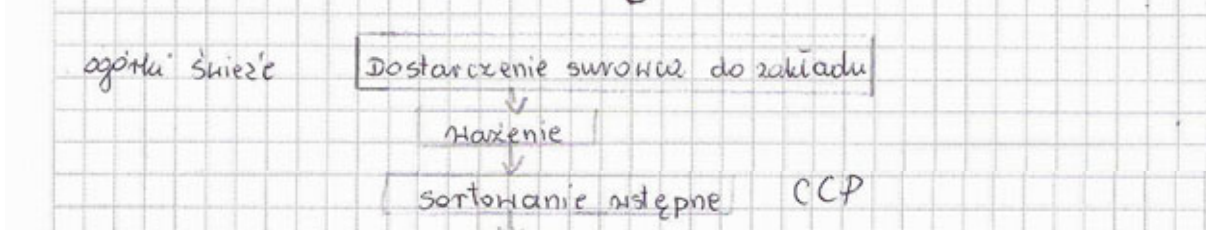 ogórki świeże Dostarczenie surowca do zakładu
ważenie
sortowanie wstępne CCP